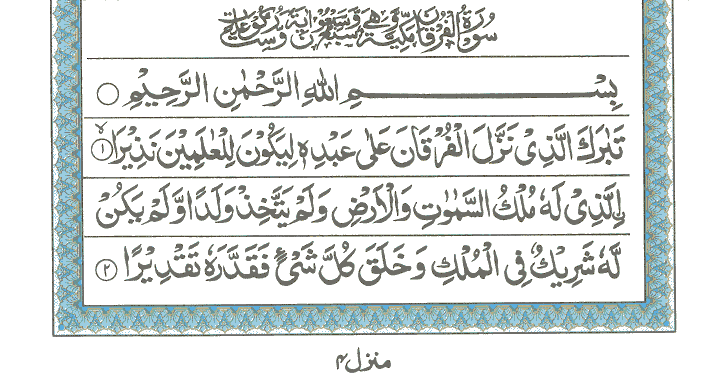 سُوْرَةُ الْفُرْقَانِ مَكِّيَّةٌ وَّهِيَ سَبْعٌ وَّسَبْعُوْنَ اٰيَةً وَّسِتُّ رُكُوْعَاتٍ
بِسْمِ اللهِ الرَّحْمٰنِ الرَّحِيْمِ
تَبٰرَكَ الَّذِىْ نَزَّلَ الْفُرْقَانَ عَلٰى عَبْدِهٖ لِيَكُوْنَ لِلْعٰلَمِيْنَ نَذِيْرَا ۙ ۱
اِۨلَّذِىْ لَهٗ مُلْكُ السَّمٰوٰتِ وَالْاَرْضِ وَلَمْ يَتَّخِذْ وَلَدًا وَّلَمْ يَكُنْ
لَّهٗ شَرِيْكٌ فِى الْمُلْكِ وَخَلَقَ كُلَّ شَىْءٍ فَقَدَّرَهٗ تَقْدِيْرًا ۲
منزل ۴